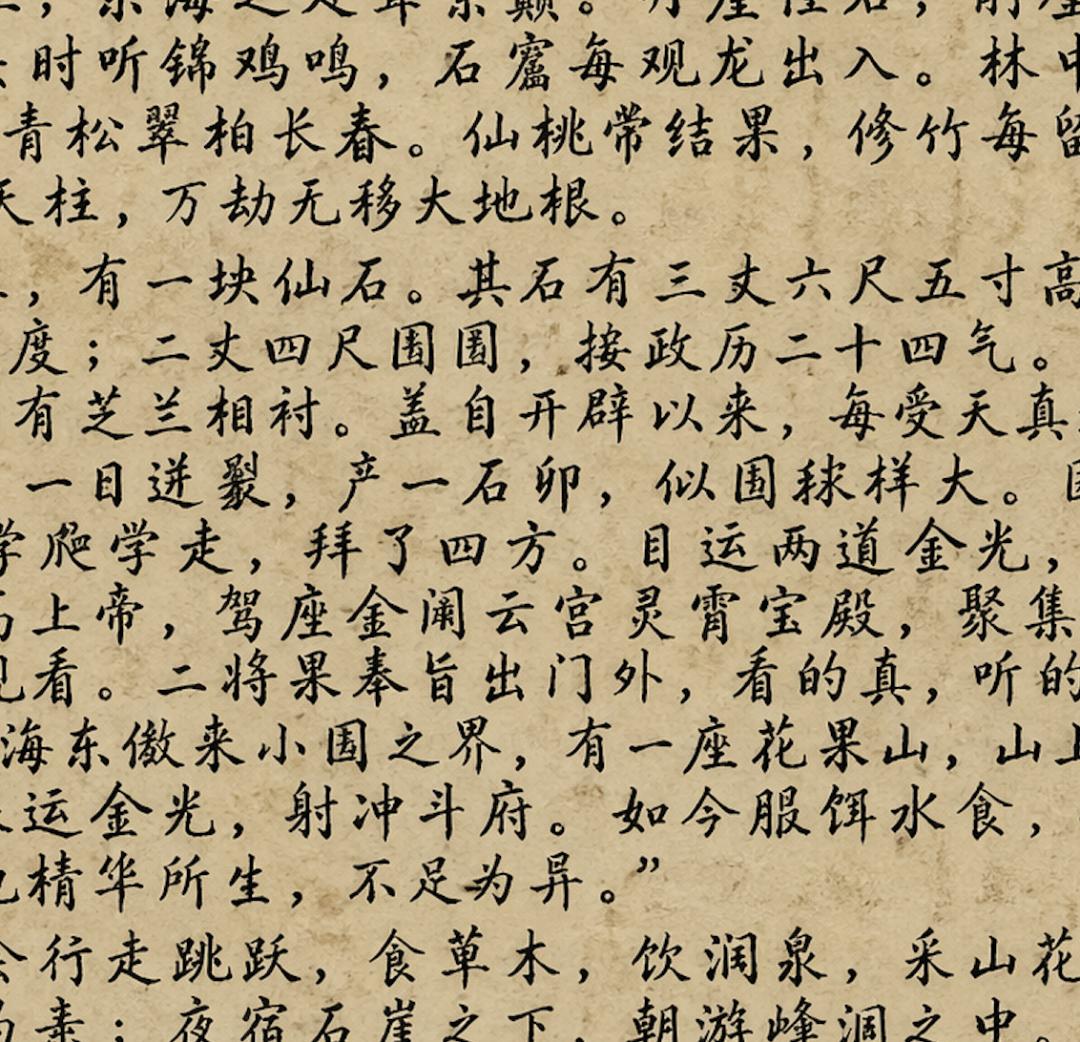 东海之处耸东巅。丹崖怪石，削
时听锦鸡鸣，石窟每观龙出入。林中
青松翠柏长春。仙桃常结果，修竹每留
天柱，万劫无移大地根。
，有一块仙石。其石有三丈六尺五寸高
度；二丈四尺围圆，按政历二十四气。
有芝兰相衬。盖自开辟以来，每受天真
一日迸裂，产一石卵，似圆球样大。
学爬学走，拜了四方。目运两道金光，
上帝，驾座金阙云宫灵霄宝殿，聚集
看。二将果奉旨出门外，看的真，听的
海东傲来小国之界，有一座花果山，山上
运金光，射冲斗府。如今服饵水食，
精华所生，不足为异。”
会行走跳跃，食草木，饮涧泉，采山花
；夜宿石崖之下，朝游峰洞之中。